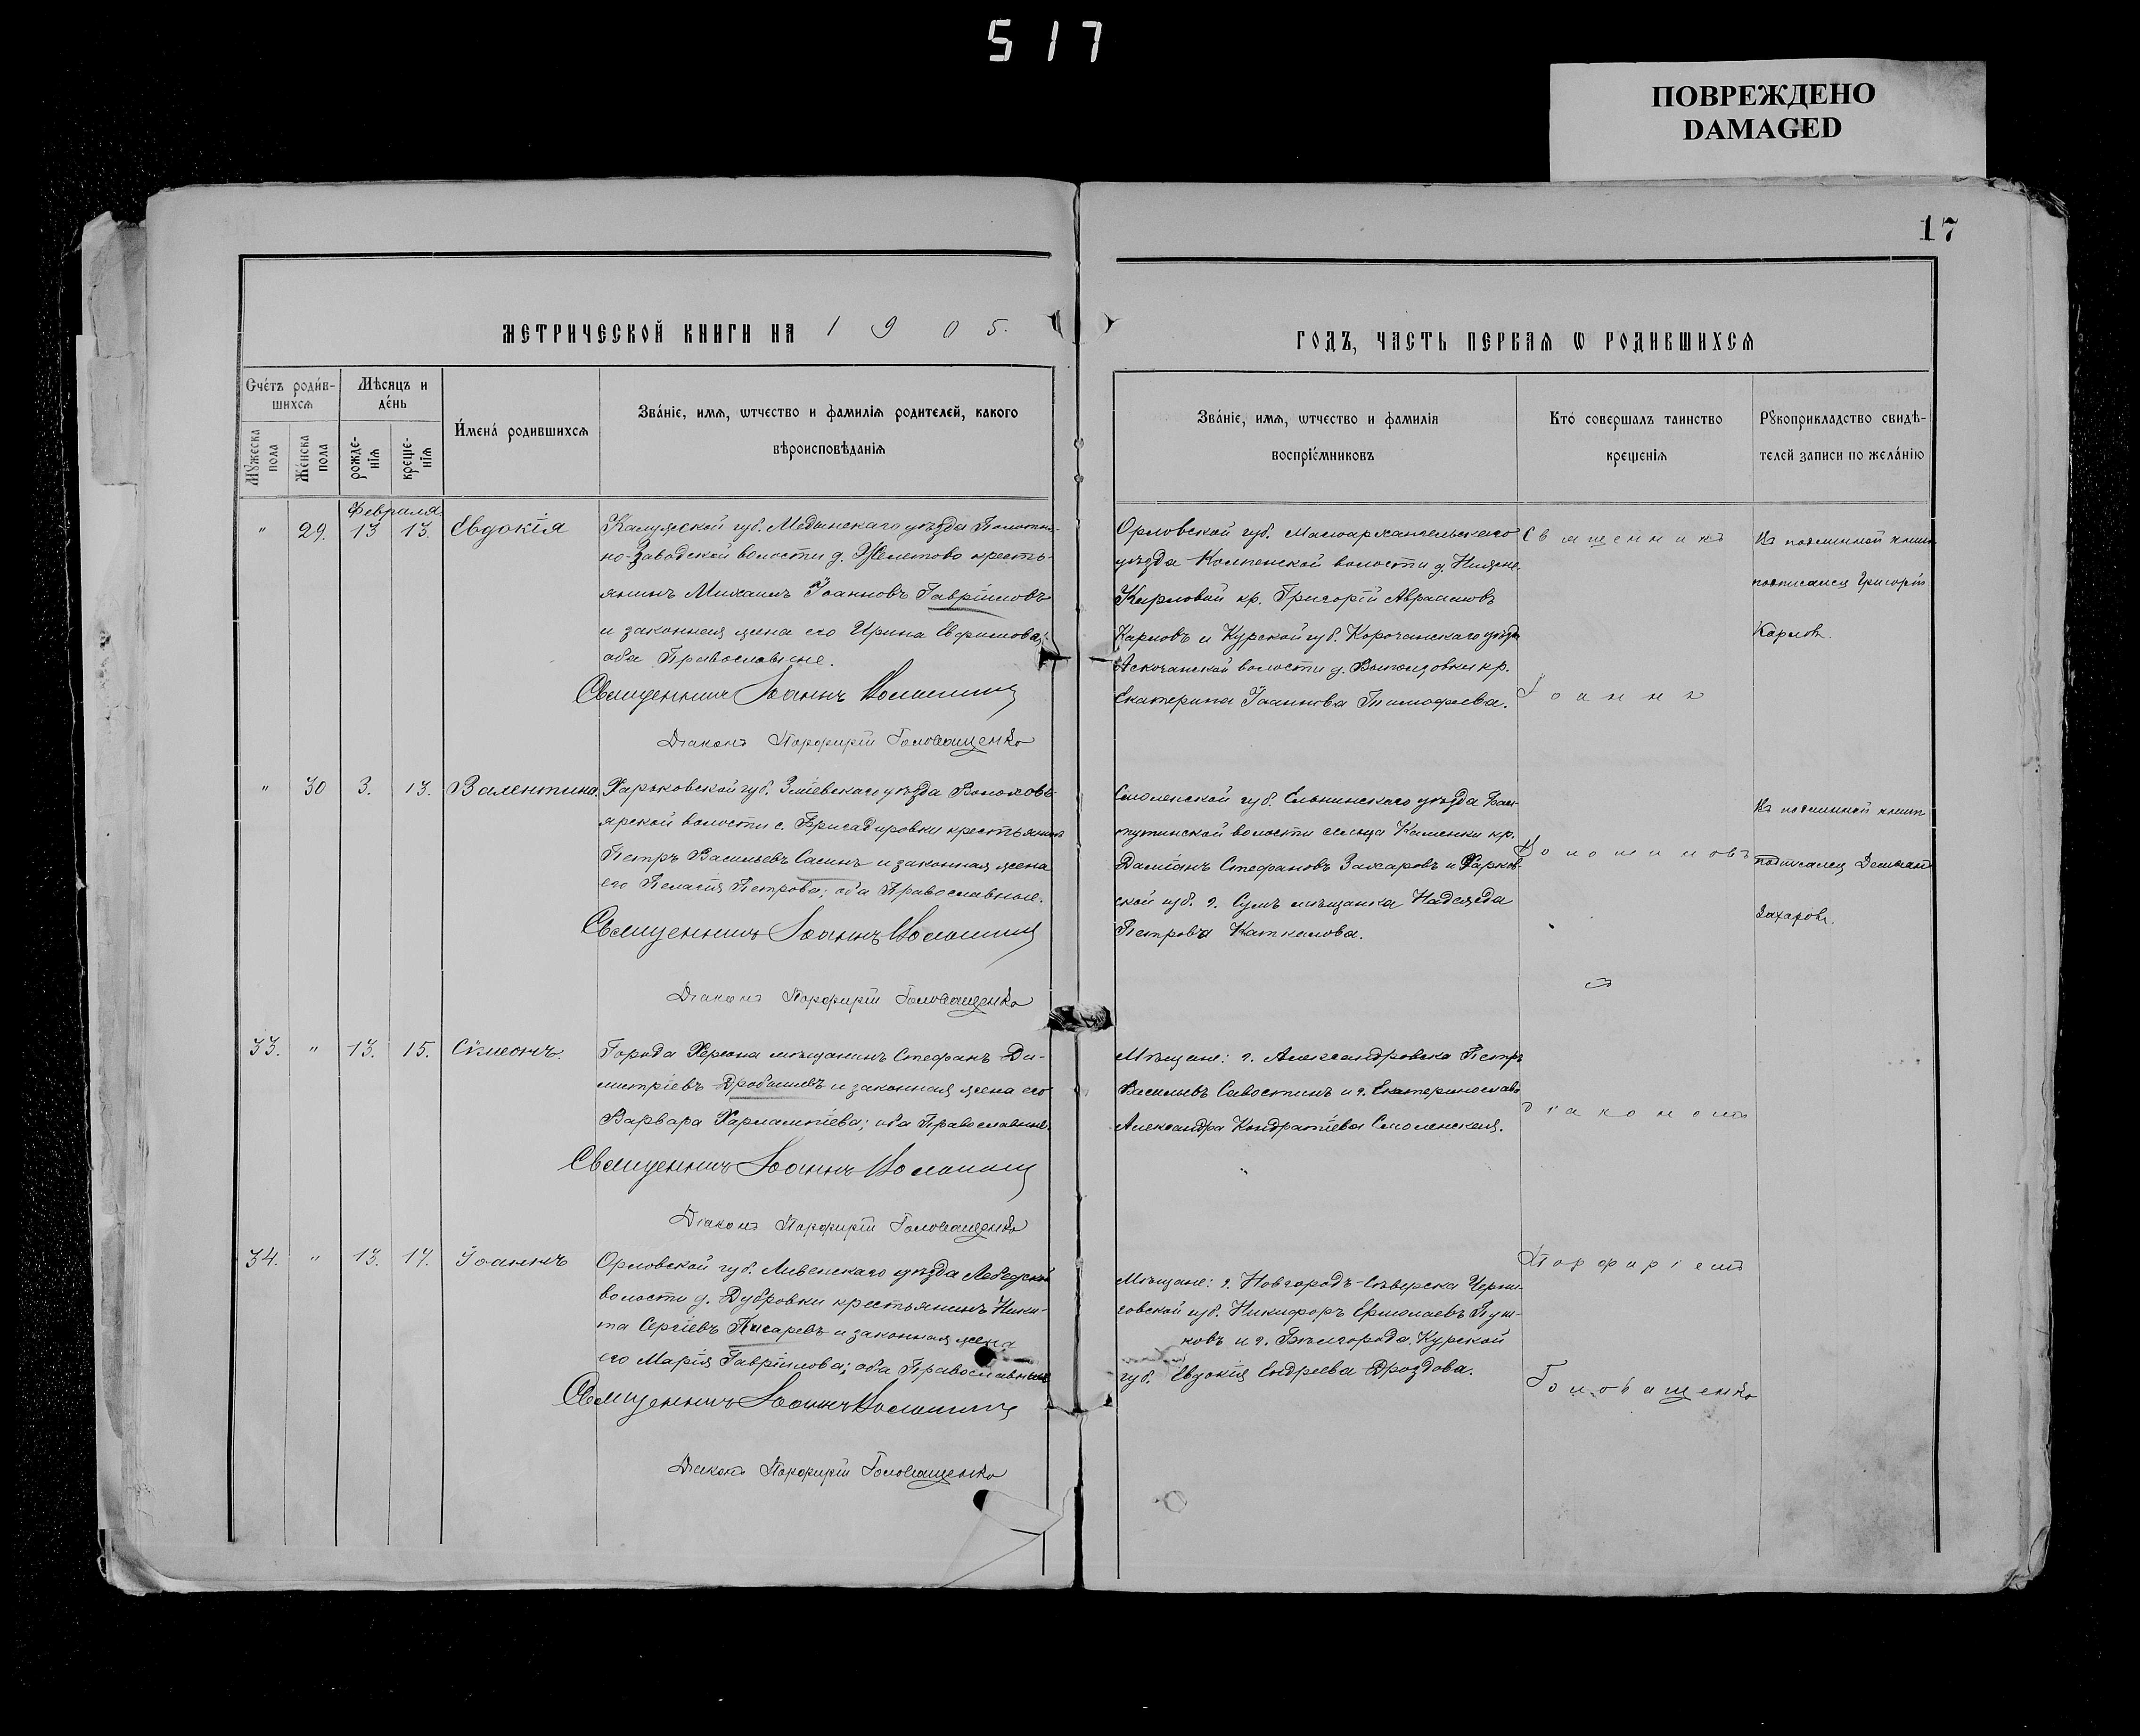 517
ПОВРЕЖДЕНО
DAMAGED
17
МЕТРИЧЕСКОЙ КНИГИ НА 1905.
ГОДЪ, ЧАСТЬ ПЕРВАѦ Ѡ РОДИВШИХСѦ
Счéтъ родѝв-
шихсѧ
Мѣсяцъ и
дéнь
Мꙋжеска пола
Жéнска пола
рожде-
нїѧ
креще-
нїѧ
И́менá родившихсѧ
Звáнїе, имѧ, ѿчество и фамилїѧ родителей, какого
вѣроисповѣданїѧ
Звáнїе, имѧ, ѿчество и фамилїѧ
воспрїéмниковъ
Ктó совершалъ таинство
крещенїѧ
Рꙋкоприкладство свидѣ-
телей записи по желáнїю
Февраля
" 29. 13 13. Евдокія
Калужской губ. Медынскаго уѣзда Полотня-
но-Заводской волости д. Желтово кресть-
янинъ Михаилъ Іоанновъ Гавріиловъ
и законная жена его Ирина Ефимова;
оба Православные.
Священникъ Іоаннъ
Діаконъ Порфирій Головащенко
Орловской губ. Малоархангельскаго
уѣзда Колпенской волости д. Нижне-
кр. Григорій Авраамовъ
Карловъ и Курской губ. Корочанскаго уѣзда
волости д. кр.
Екатерина Іоаннова Тимофеева.
Священникъ
Іоаннъ
Въ подлинной книгѣ
подписался Григорій
Карловъ.
" 30 3. 13. Валентина.
Харьковской губ. Зміевскаго уѣзда Волохово-
ярской волости с. Бригадировки крестьянинъ
Петръ Васильевъ Сасинъ и законная жена
его Пелагія Петрова; оба Православные.
Священникъ Іоаннъ
Діаконъ Порфирій Головащенко
Смоленской губ. Ельнинскаго уѣзда Бал-
тутинской волости сельца Каменки кр.
Даміанъ Стефановъ Захаровъ и Харьков-
ской губ. г. Сумъ мѣщанка Надежда
Петрова Каткалова.
съ
Въ подлинной книгѣ
подписался Демьянъ
Захаровъ.
33. " 13. 15. Сѵмеонъ.
Города Херсона мѣщанинъ Стефанъ Ди-
митріевъ и законная жена его
Варвара Харлампіева; оба Православные.
Священникъ Іоаннъ
Діаконъ Порфирій Головащенко
Мѣщане: г. Александровска Петръ
Васильевъ Савостинъ и г. Екатеринослава
Александра Кондратіева Смоленская.
діакономъ
34. " 13. 17. Іоаннъ
Орловской губ. Ливенскаго уѣзда
волости д. Дубровки крестьянинъ Ники-
та Сергіевъ Писаревъ и законная жена
его Марія Гавріилова; оба Православные
Священникъ Іоаннъ
Діаконъ Порфирій Головащенко
Мѣщане: г. Новгородъ-Сѣверска Черни-
говской губ. Никифоръ Ермолаевъ
и г. Бѣлгорода Курской
губ. Евдокія Андреева Дроздова.
Порфиріемъ
Головащенко